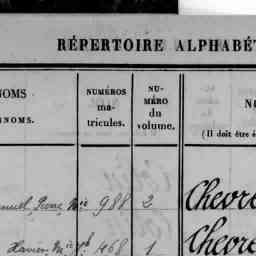 RÉPERTOIRE ALPHABÉ
NOMS
ÉNOMS.
NUMÉROS
ma-
tricules.
NU-
MÉRO
du
volume.
NO
(Il doit être é
nuel Pierre Mie 988 2 Chevre
Xavier Mie 468 1 Chevre